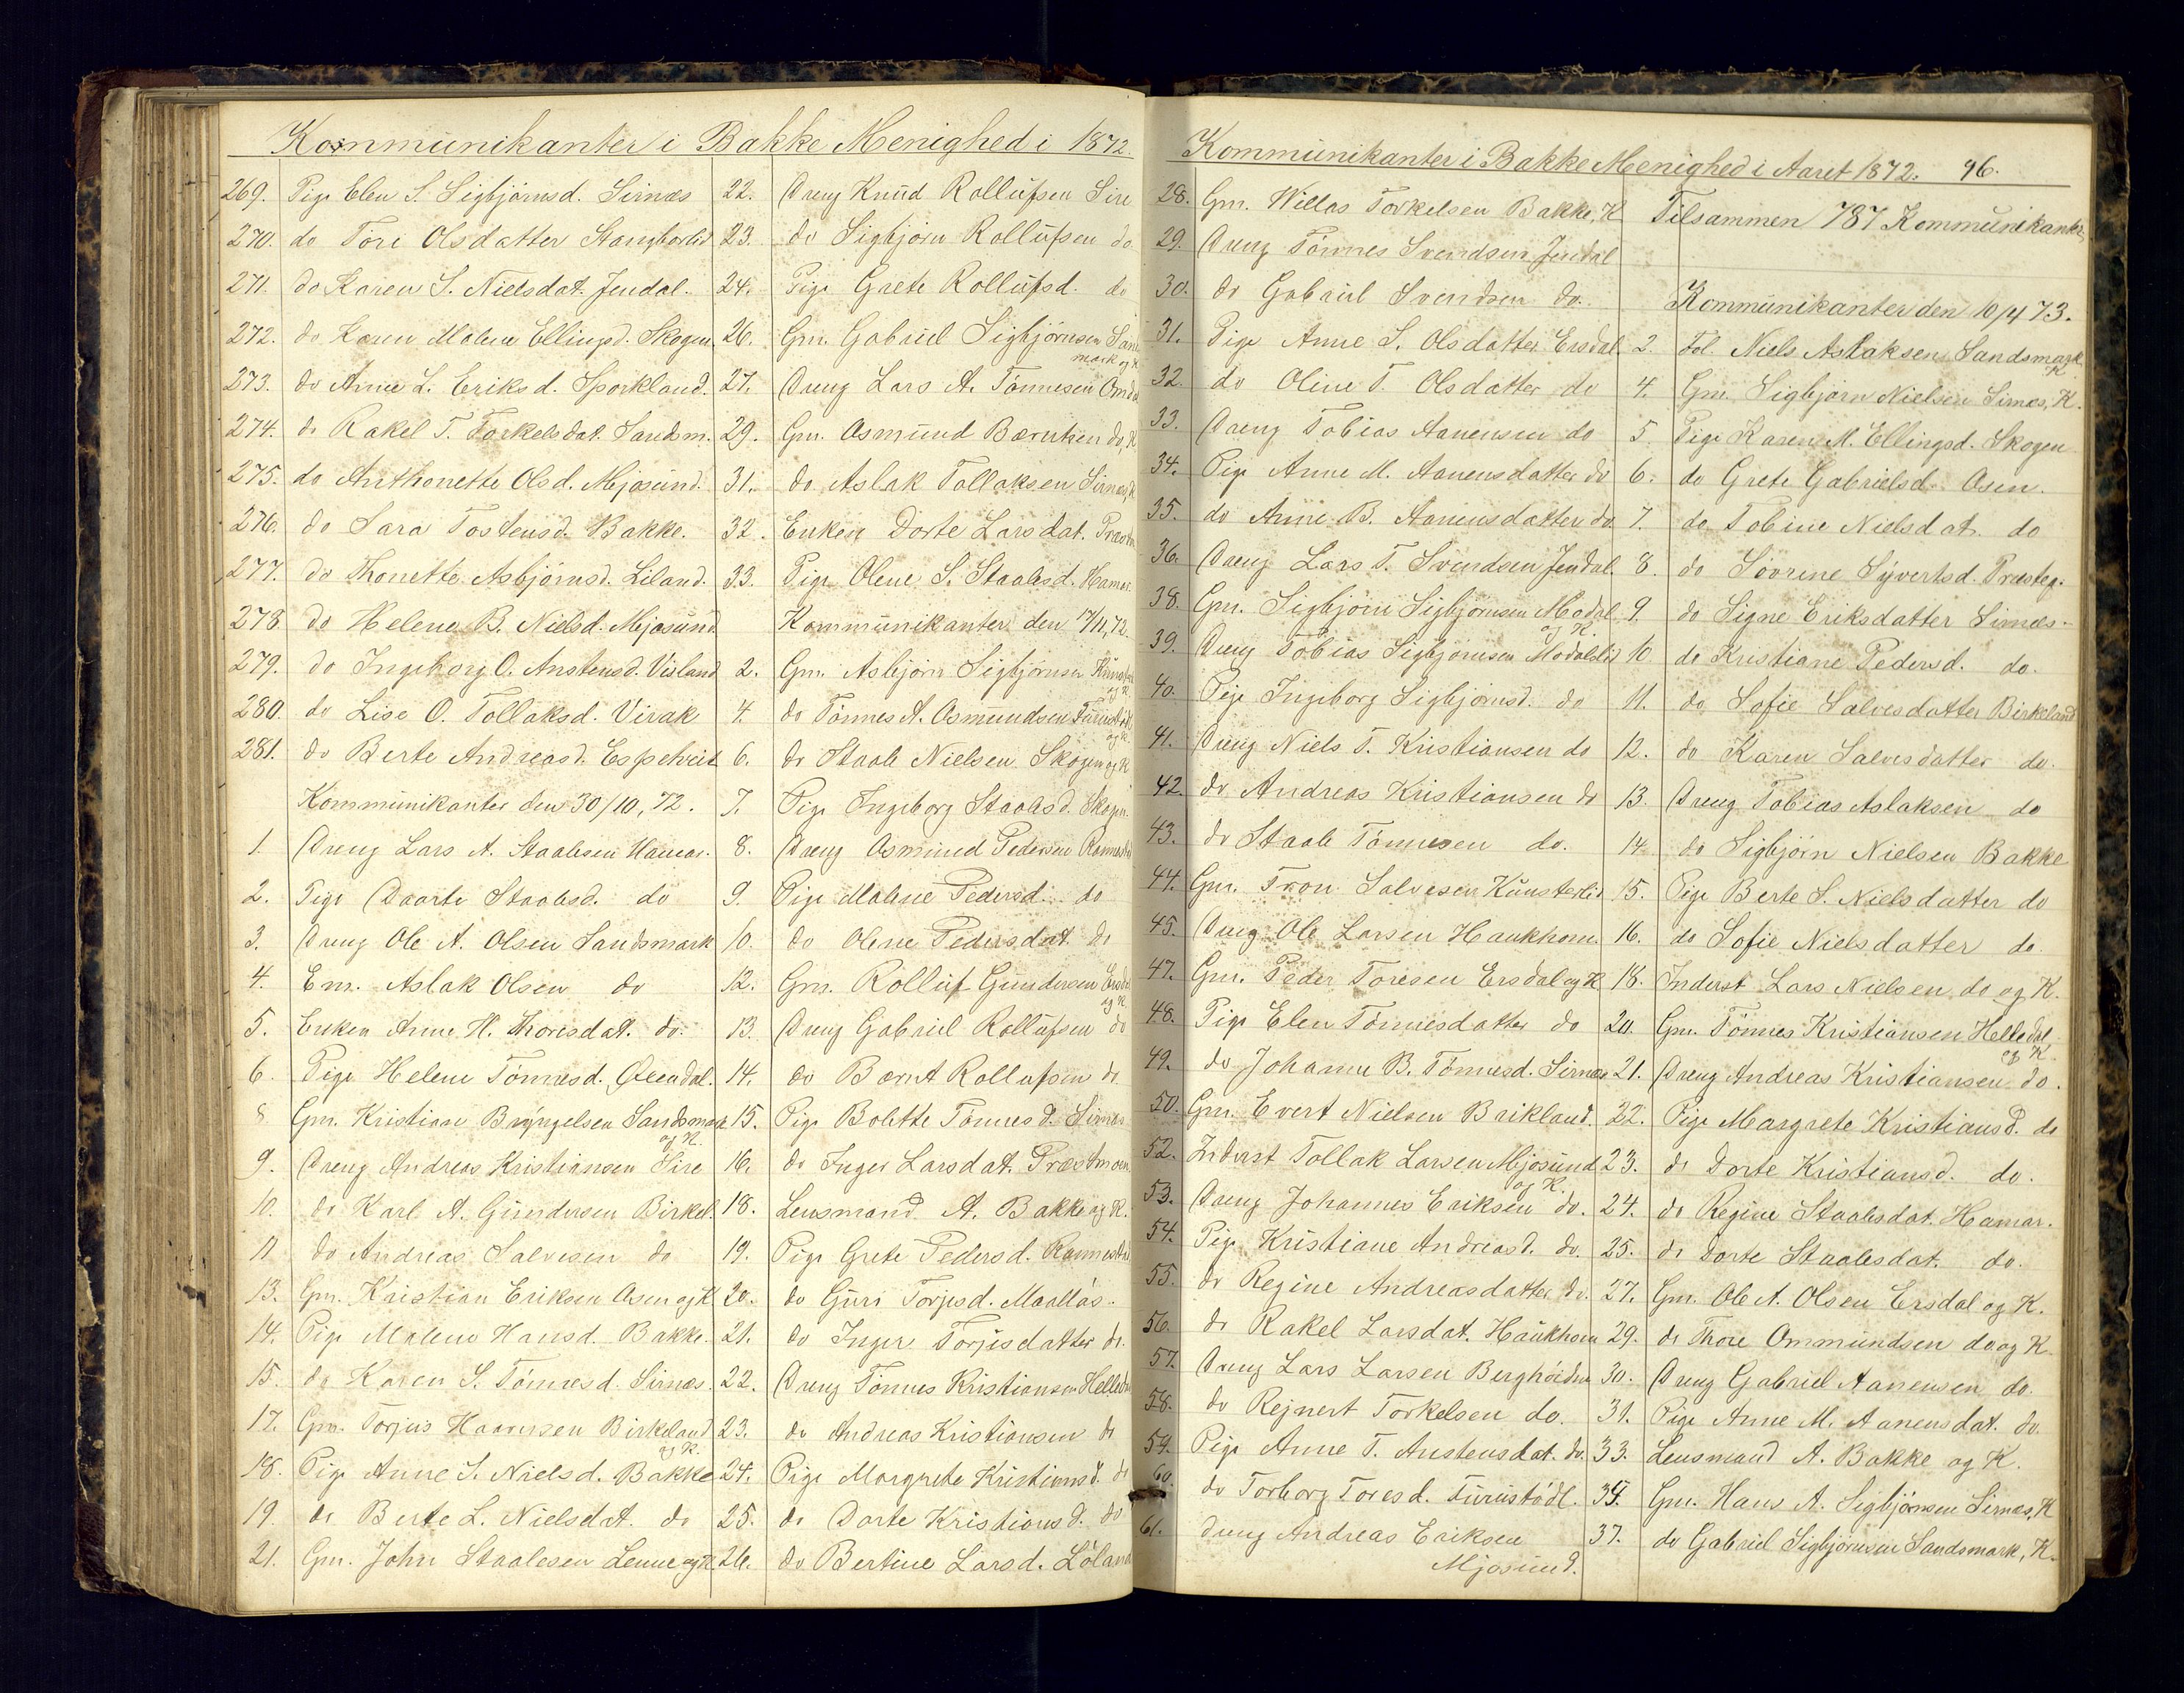 Kommunikanter i Bakke Menighed i 1872.
269. Pige Elen S. Sigbjörnsd. Sirnæs
270. do Tori Olsdatter Stangborlid
271. do Karen S. Nielsdat. Jendal.
272. do Karen Malene Ellingsd. Skogen
273. do Anne L. Eriksd. Sporkland.
274. do Rakel T. Torkelsdat. Sandsm.
275. do Anthonette Olsd. Mjosund.
276. do Sara Tostensd. Bakke.
277. do Thonette Asbjörnsd. Liland.
278. do Helene B. Nielsd. Mjosund
279. do Ingeborg O. Anstensd. Visland
280. do Lise O. Tollaksd. Virak
281. do Berte Andreasd. Espetveit
Kommunikanter den 30/10, 72.
1. Dreng Lars A. Staalesen Hamar.
2. Pige Daarte Staalesd. do
3. Dreng Ole A. Olsen Sandsmark
4. Em. Aslak Olsen do
5. Enken Anne H. Thorisdat. do.
6. Pige Helene Tönnesd.
8. Gm. Kristian Bryngelsen Sandsmark
og K.
9. Dreng Andreas Kristiansen Sire
10. do Karl A. Gundersen Birkel.
11. do Andreas Salvesen do
13. Gm. Kristian Eriksen Osen og K
14. Pige Malene Hansd. Bakke.
15. do Karen S. Tönnesd. Sirnæs.
17. Gm. Torjus Haaversen Birkeland
og K.
18. Pige Anne S. Nielsd. Bakke
19. do Berte L. Nielsdat. do
21. Gm. John Staalesen Leune og K
22. Dreng Knud Rollufsen Sire
23. do Sigbjörn Rollufsen do
24. Pige Grete Rollufsd. do
26. Gm. Gabriel Sigbjörnsen Sands
mark og K
27. Dreng Lars A. Tönnesen Omdal
29. Gm. Asmund Berntsen do, K
31. do Aslak Tollaksen Sirnæs, K
32. Enken Dorte Larsdat. Præstm
33. Pige Olene S. Staalesd. Hamar.
Kommunikanter den 17/11, 72.
2. Gm. Asbjörn Sigbjörnsen
og K.
4. do Tönnes A. Osmundsen Furustödl
og K.
6. do Staale Nielsen Skogen og K
7. Pige Ingeborg Staalesd. Skogen.
8. Dreng Osmund Pedersen
9. Pige Malene Pedersd. do
10. do Olene Pedersdat. do
12. Gm. Rolluf Gundersen Ersdal
og K
13. Dreng Gabriel Rollufsen do
14. do Bernt Rollufsen do
15. Pige Bolette Tönnesd. Sirnæs
16. do Inger Larsdat. Præstmoen
18. Lensmand A. Bakke og K.
19. Pige Grete Pedersd.
20. do Guri Torjusd.
21. do Inger Torjusdatter do.
22. Dreng Tönnes Kristiansen Helledal
23. do Andreas Kristiansen do
24. Pige Margrete Kristiansd. do
25. do Dorte Kristiansd. do
26. do Bertine Larsd. Löland
Kommunikanter i Bakke Menighed i Aaret 1872. 96.
28. Gm. Willas Torkelsen Bakke, K
29. Dreng Tönnes Svendsen Jendal
30. do Gabriel Svendsen do.
31. Pige Anne S. Olsdatter Ersdal
32. do Oline T. Olsdatter do
33. Dreng Tobias Aanensen do
34. Pige Anne M. Aanensdatter do
35. do Anne B. Aanensdatter do
36. Dreng Lars T. Svendsen Jendal.
38. Gm. Sigbjörn Sigbjörnsen Modal.
og K.
39. Dreng Tobias Sigbjörnsen Modalslid
40. Pige Ingeborg Sigbjörnsd. do
41. Dreng Niels T. Kristiansen do
42. do Andreas Kristiansen do
43. do Staale Tönnesen do.
44. Gm. Tron Salvesen Kunsterlid
45. Dreng Ole Larsen Haukhom.
47. Gm. Peder Toresen Ersdal og K
48. Pige Elen Tönnesdatter do
49. do Johanne B. Tönnesd. Sirnæs
50. Gm. Evert Nielsen Brikland.
52. Inderst Tollak Larsen Mjosund
og K.
53. Dreng Johannes Eriksen do.
54. Pige Kristiane Andreasd. do.
55. do Regine Andreasdatter do.
56. do Rakel Larsdat. Haukhom
57. Dreng Lars Larsen
58. do Rejnert Torkelsen do.
59. Pige Anne T. Anstensdat. do.
60. do Torborg Toresd. Furustödl.
61. Dreng Andreas Eriksen
Mjosund.
Tilsammen 787 Kommunikanter,
Kommunikanter den 10/4 73.
2. Fol. Niels Aslaksen Sandsmark
K.
4. Gm. Sigbjörn Nielsen Sirnæs, K.
5. Pige Karen M. Ellingsd. Skogen
6. do Grete Gabrielsd. Osen.
7. do Tobine Nielsdat. do
8. do Sövrine Syvertsd. Præsteg.
9. do Signe Eriksdatter Sirnæs.
10. do Kristiane Pedersd. do.
11. do Sofie Salvesdatter Birkeland
12. do Karen Salvesdatter do.
13. Dreng Tobias Aslaksen do
14. do Sigbjörn Nielsen Bakke
15. Pige Berte S. Nielsdatter do
16. do Sofie Nielsdatter do.
18. Inderst Lars Nielsen do og K.
20. Gm. Tönnes Kristiansen Helledal,
og K.
21. Dreng Andreas Kristiansen do.
22. Pige Margrete Kristiansd. do
23. do Dorte Kristiansd. do.
24. do Regine Staalesdat. Hamar.
25. do Dorte Staalesdat. do.
27. Gm. Ole A. Olsen Ersdal og K.
29. do Thore Ommundsen do og K.
30. Dreng Gabriel Aanensen do.
31. Pige Anne M. Aanensdat. do.
33. Lensmand A. Bakke og K.
35. Gm. Hans A. Sigbjörnsen Sirnæs, K
37. do Gabriel Sigbjörnsen Sandsmark, K.